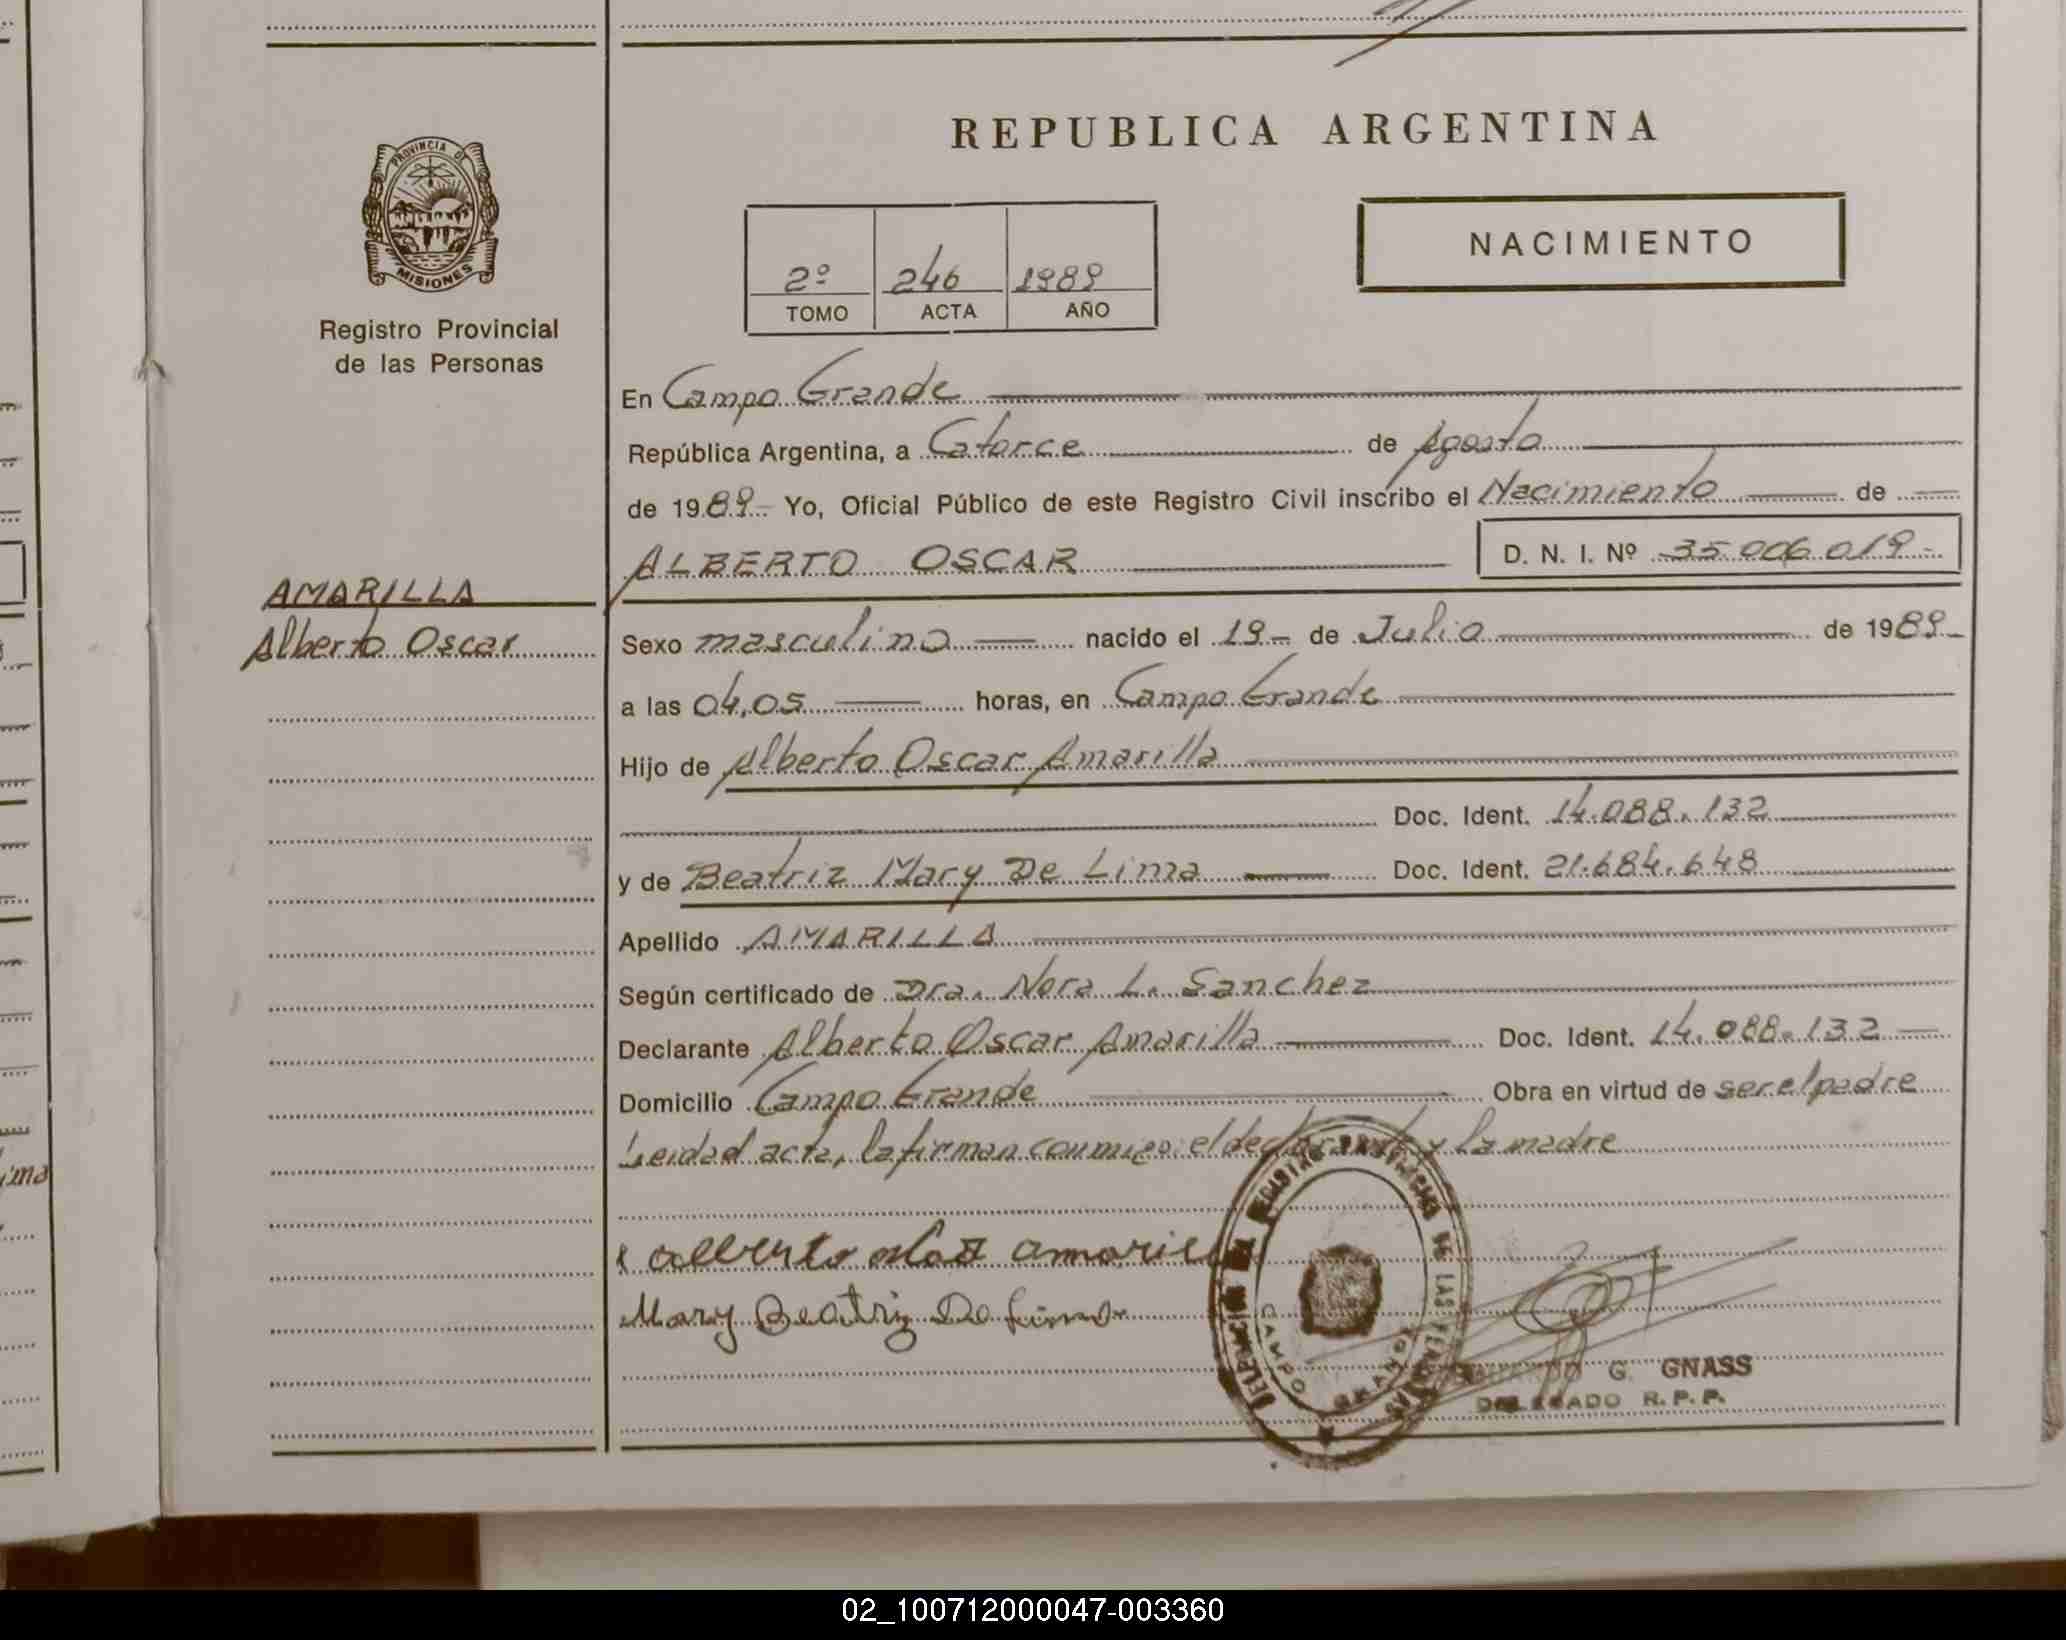 REPUBLICA ARGENTINA
PROVINCIA DE
MISIONES
Registro Provincial
de las Personas
2º 246 1989
TOMO ACTA AÑO
NACIMIENTO
En Campo Grande
República Argentina, a Catorce de Agosto
de 1989- Yo, Oficial Público de este Registro Civil inscribo el Nacimiento de
ALBERTO OSCAR D. N. I. Nº 35.006.019-
AMARILLA
Alberto Oscar
Sexo masculino nacido el 19- de Julio de 1989-
a las 04,05 horas, en Campo Grande
Hijo de Alberto Oscar Amarilla
Doc. Ident. 14.088.132
y de Beatriz Mary De Lima Doc. Ident. 21.684.648
Apellido AMARILLA
Según certificado de Dra. Nora L. Sanchez
Declarante Alberto Oscar Amarilla Doc. Ident. 14.088.132
Domicilio Campo Grande Obra en virtud de ser el padre
Leida el acta, la firman conmigo: el declarante y la madre
alberto amarilla
Mary Beatriz De Lima
DELEGACION REGISTRO PROVINCIAL DE LAS PERSONAS
CAMPO GRANDE
G. GNASS
DELEGADO R.P.P.
02_100712000047-003360